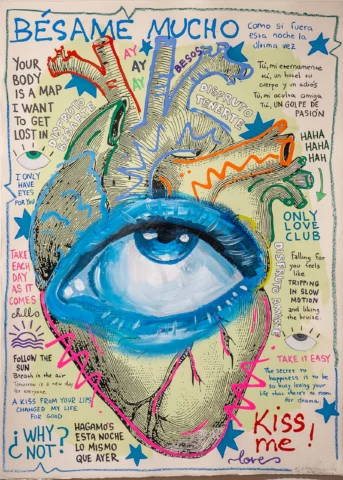 BÉSAME MUCHO
Como si fuera
esta noche la
última vez
YOUR
BODY
IS A MAP
I WANT
TO GET
LOST IN
AY
AY
AY
BESOS
DISFRUTO
TENERTE
Tú, mi eternamente
tú, un hotel tu
cuerpo y un adiós
Tú, mi oculta amiga
Tú, UN GOLPE DE
PASIÓN
HAHA
HAHA
HAH
I ONLY
HAVE
EYES
FOR YOU
ONLY
LOVE
CLUB
TAKE
EACH
DAY
AS IT
COMES
chills
Falling for
you feels
like
TRIPPING
IN SLOW
MOTION
and liking
the bruise.
DISFRUTO
FOLLOW THE
SUN
Breath in the air
Tomorrow is a new day
for everyone
TAKE IT EASY
The secret to
happiness is to be
so busy loving your
life that there's no room
for drama.
A KISS FROM YOUR LIPS
CHANGED MY LIFE
FOR GOOD
¿WHY?
NOT?
HAGAMOS
ESTA NOCHE
LO MISMO
QUE AYER
Kiss
me!
love